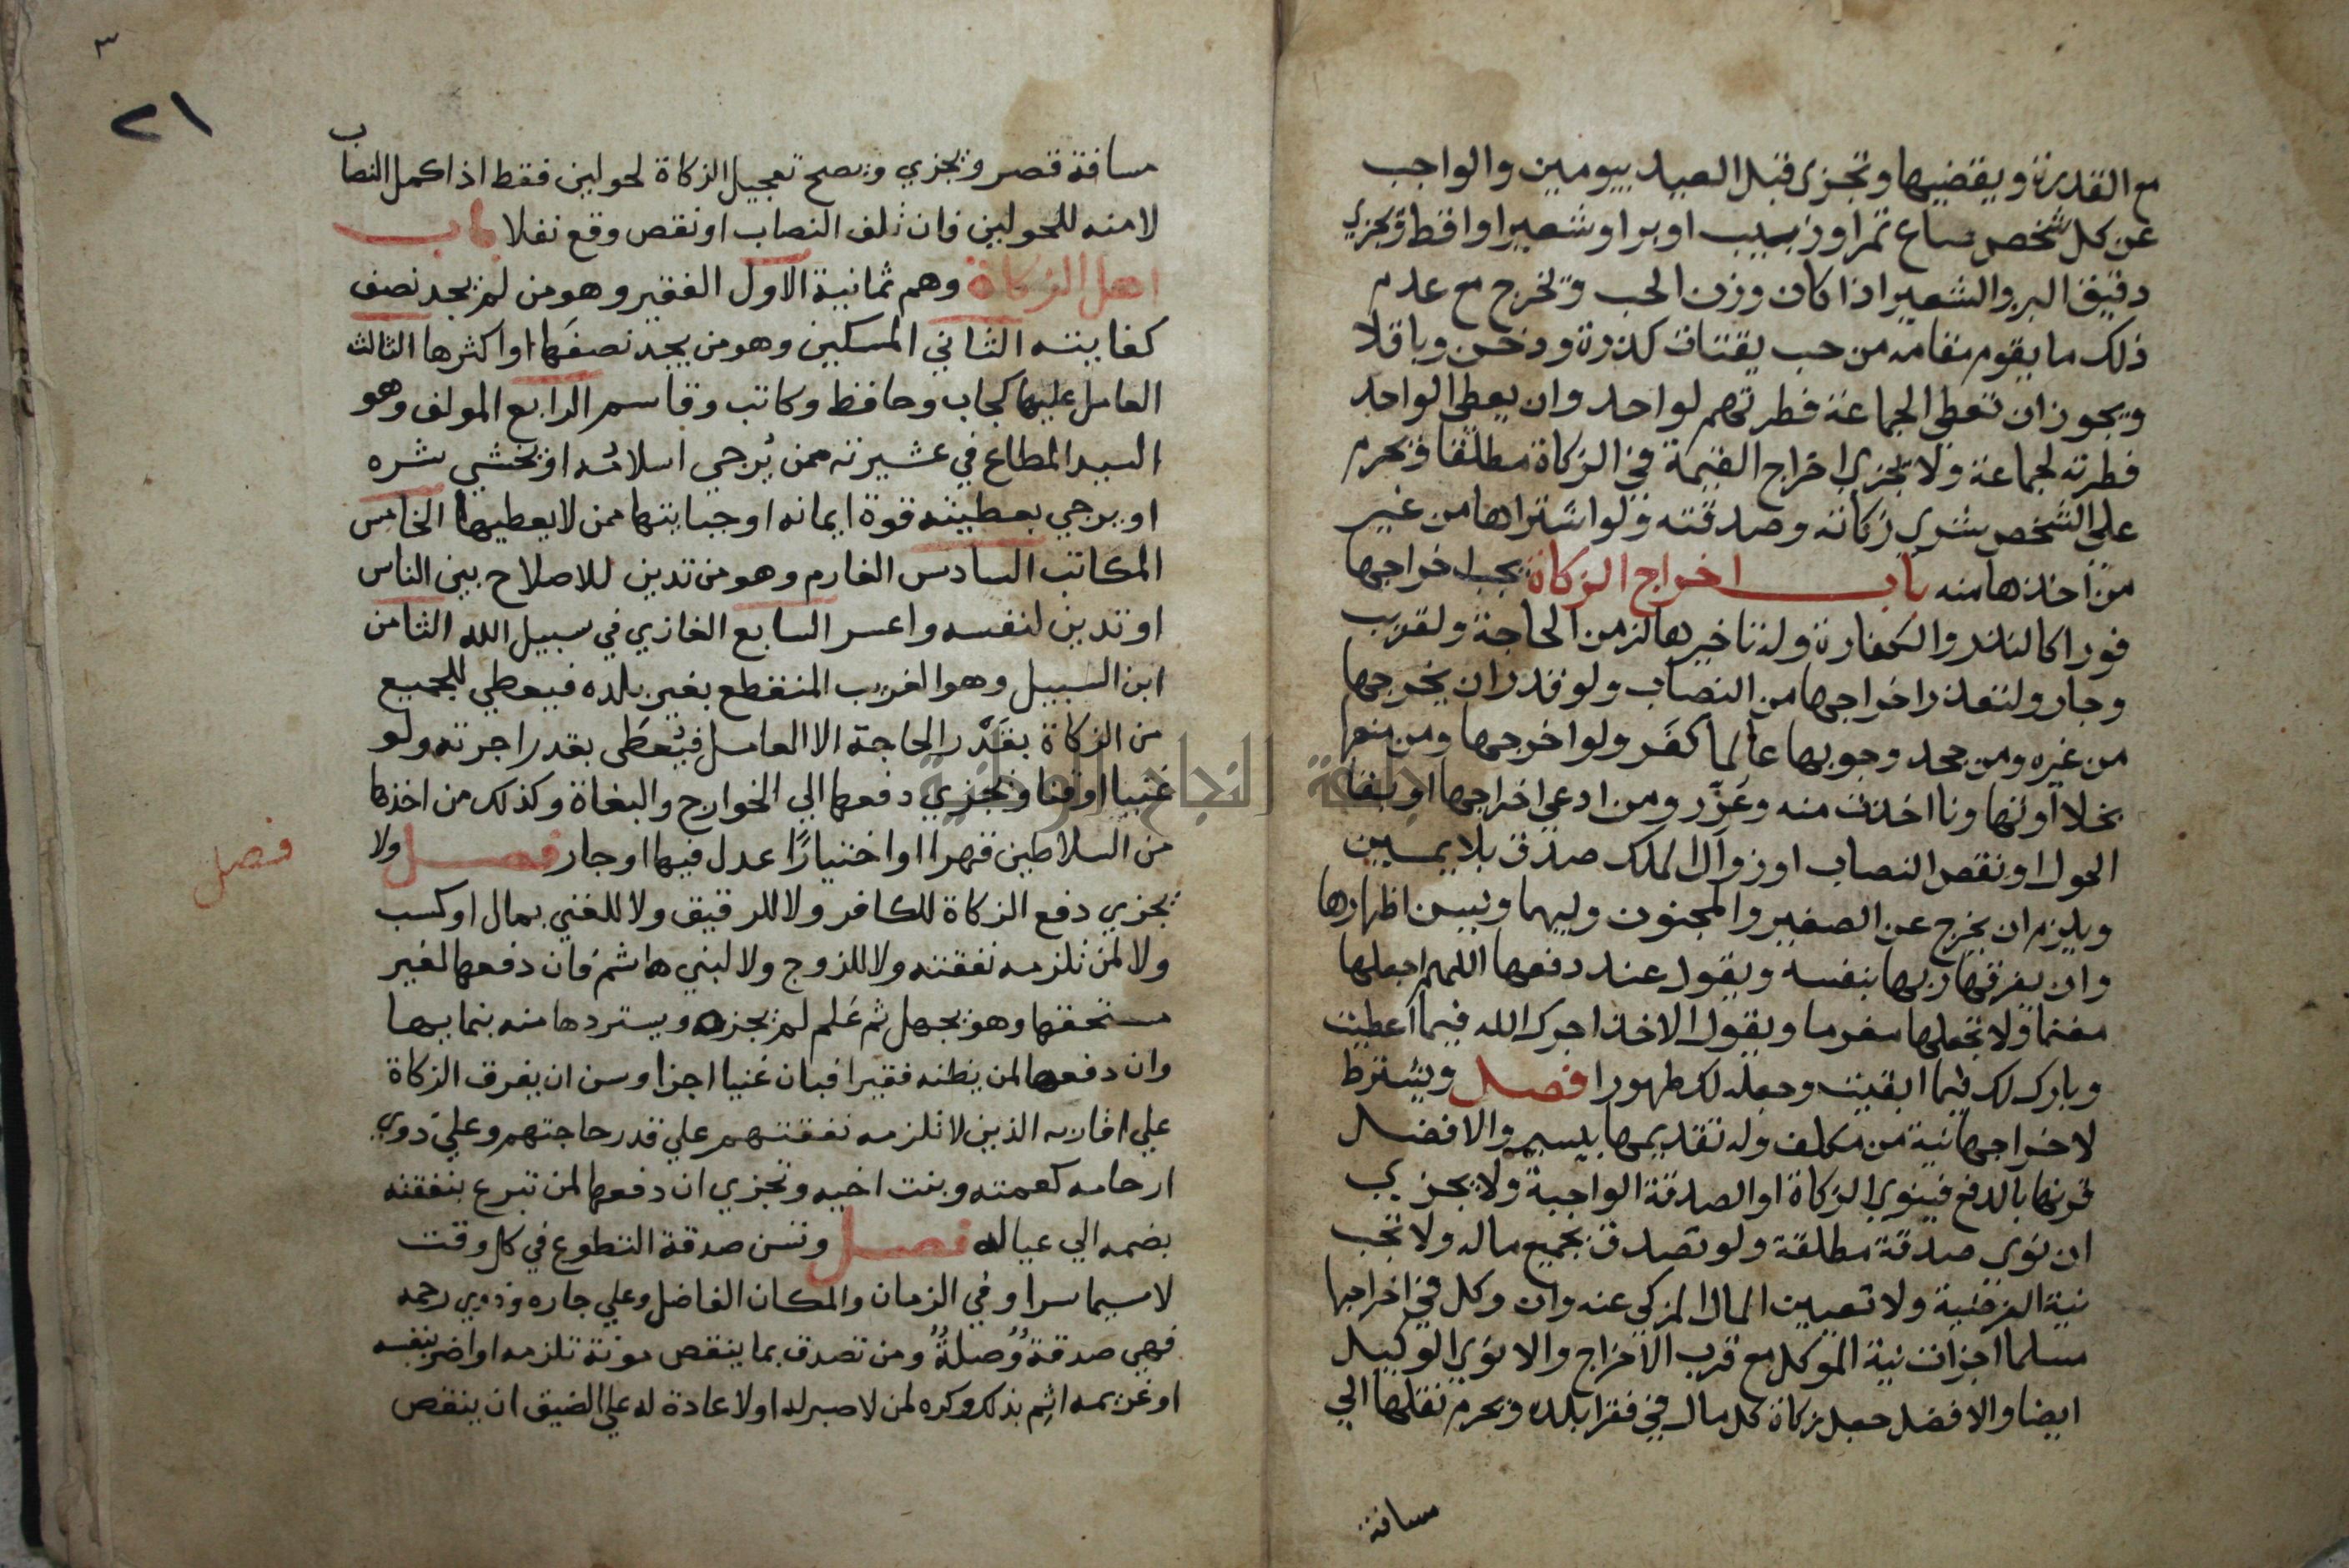 مع القدرة ويقضيها وتجزى قبل العيد بيومين والواجب
عن كل شخص صاع تمر او زبيب او بر او شعير او اقط ويجزي
دقيق البر والشعير اذا كان وزن الحب وتخرج مع عدم
ذلك ما يقوم مقامه من حب يقتات كذرة ودخن وباقلا
ويجوز ان تعطى الجماعة فطرتهم لواحد وان يعطى الواحد
فطرته لجماعة ولا يجزي اخراج القيمة في الزكاة مطلقا ويحرم
على الشخص شرى زكاته وصدقته ولو اشتراها من غير
من اخذها منه باب اخراج الزكاة يجب اخراجها
فورا كالنذر والكفارة وله تاخيرها لزمن الحاجة ولقريب
وجار ولتعذر اخراجها من النصاب ولو قدر ان يخرجها
من غيره ومن جحد وجوبها عالما كفر ولو اخرجها ومن منعها
بخلا او تهاونا اخذت منه وعزر ومن ادعى اخراجها او بقا
الحول او نقص النصاب او زوال الملك صدق بلا يمين
ويلزم ان يخرج عن الصغير والمجنون وليهما ويسن اظهارها
وان يفرقها ربها بنفسه ويقول عند دفعها اللهم اجعلها
مغنما ولا تجعلها مغرما ويقول الاخذ اجرك الله فيما اعطيت
وبارك لك فيما ابقيت وجعله لك طهورا فصل ويشترط
لاخراجها نية من مكلف وله تقديمها بيسير والافضل
قرنها بالدفع فينوي الزكاة او الصدقة الواجبة ولا يجزي
ان نوى صدقة مطلقة ولو تصدق بجميع ماله ولا تجب
نية الفرضية ولا تعيين المال المزكى عنه وان وكل في اخراجها
مسلما اجزات نية الموكل مع قرب الاخراج والا نوى الوكيل
ايضا والافضل جعل زكاة كل مال في فقرا بلده ويحرم نقلها الي
مسافة
٣
٢١
مسافة قصر وتجزي ويصح تعجيل الزكاة لحولين فقط اذا كمل النصاب
لا منه للحولين فان تلف النصاب او نقص وقع نفلا باب
اهل الزكاة وهم ثمانية الاول الفقير وهو من لم يجد نصف
كفايته الثاني المسكين وهو من يجد نصفها او اكثرها الثالث
العامل عليها كجاب وحافظ وكاتب وقاسم الرابع المولف وهو
السيد المطاع في عشيرته ممن يُرجي اسلامُه او يخشي شره
او يرجي بعطيته قوة ايمانه او جبايتها ممن لا يعطيها الخامس
المكاتب السادس الغارم وهو من تدين للاصلاح بين الناس
او تدين لنفسه واعسر السابع الغازي في سبيل الله الثامن
ابن السبيل وهو الغريب المنقطع بغير بلده فيعطي للجميع
من الزكاة بقَدْر الحاجة الا العامل فيُعطَى بقدر اجرته ولو
غنيا او قنا ويجزي دفعها الي الخوارج والبغاة وكذلك من اخذها
من السلاطين قهرا او اختيارًا عدل فيها او جار فصل ولا
فصل
يجزي دفع الزكاة للكافر ولا للرقيق ولا للغني بمال او كسب
ولا لمن تلزمه نفقته ولا للزوج ولا لبني هاشم فان دفعها لغير
مستحقها وهو يجهل ثم عَلم لم يجزه ويستردها منه بنمايها
وان دفعها لمن يظنه فقيرا فبان غنيا اجزا وسن ان يفرق الزكاة
علي اقاربه الذين لا تلزمه نفقتهم علي قدر حاجتهم وعلي ذوي
ارحامه كعمته وبنت اخيه وتجزي ان دفعها لمن تبرع بنفقته
بضمه الي عياله فصل وتسن صدقة التطوع في كل وقت
لاسيما سرا وفي الزمان والمكان الفاضل وعلي جاره وذوي رحمه
فهي صدقةٌ وصلةٌ ومن تصدق بما ينقص مونة تلزمه او اضر بنفسه
او غريمه اثِم بذلك وكره لمن لا صبر له او لا عادة له علي الضيق ان ينقص